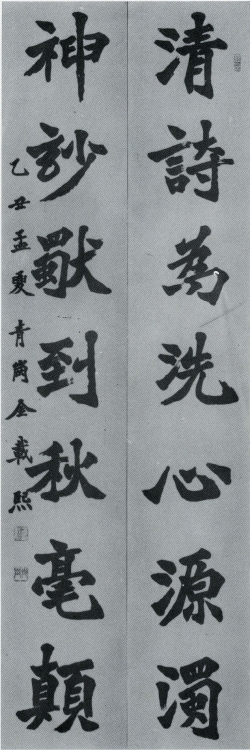 清詩為洗心源濁
神玅獨到秋毫顛
乙丑孟夏 青崗金載熙